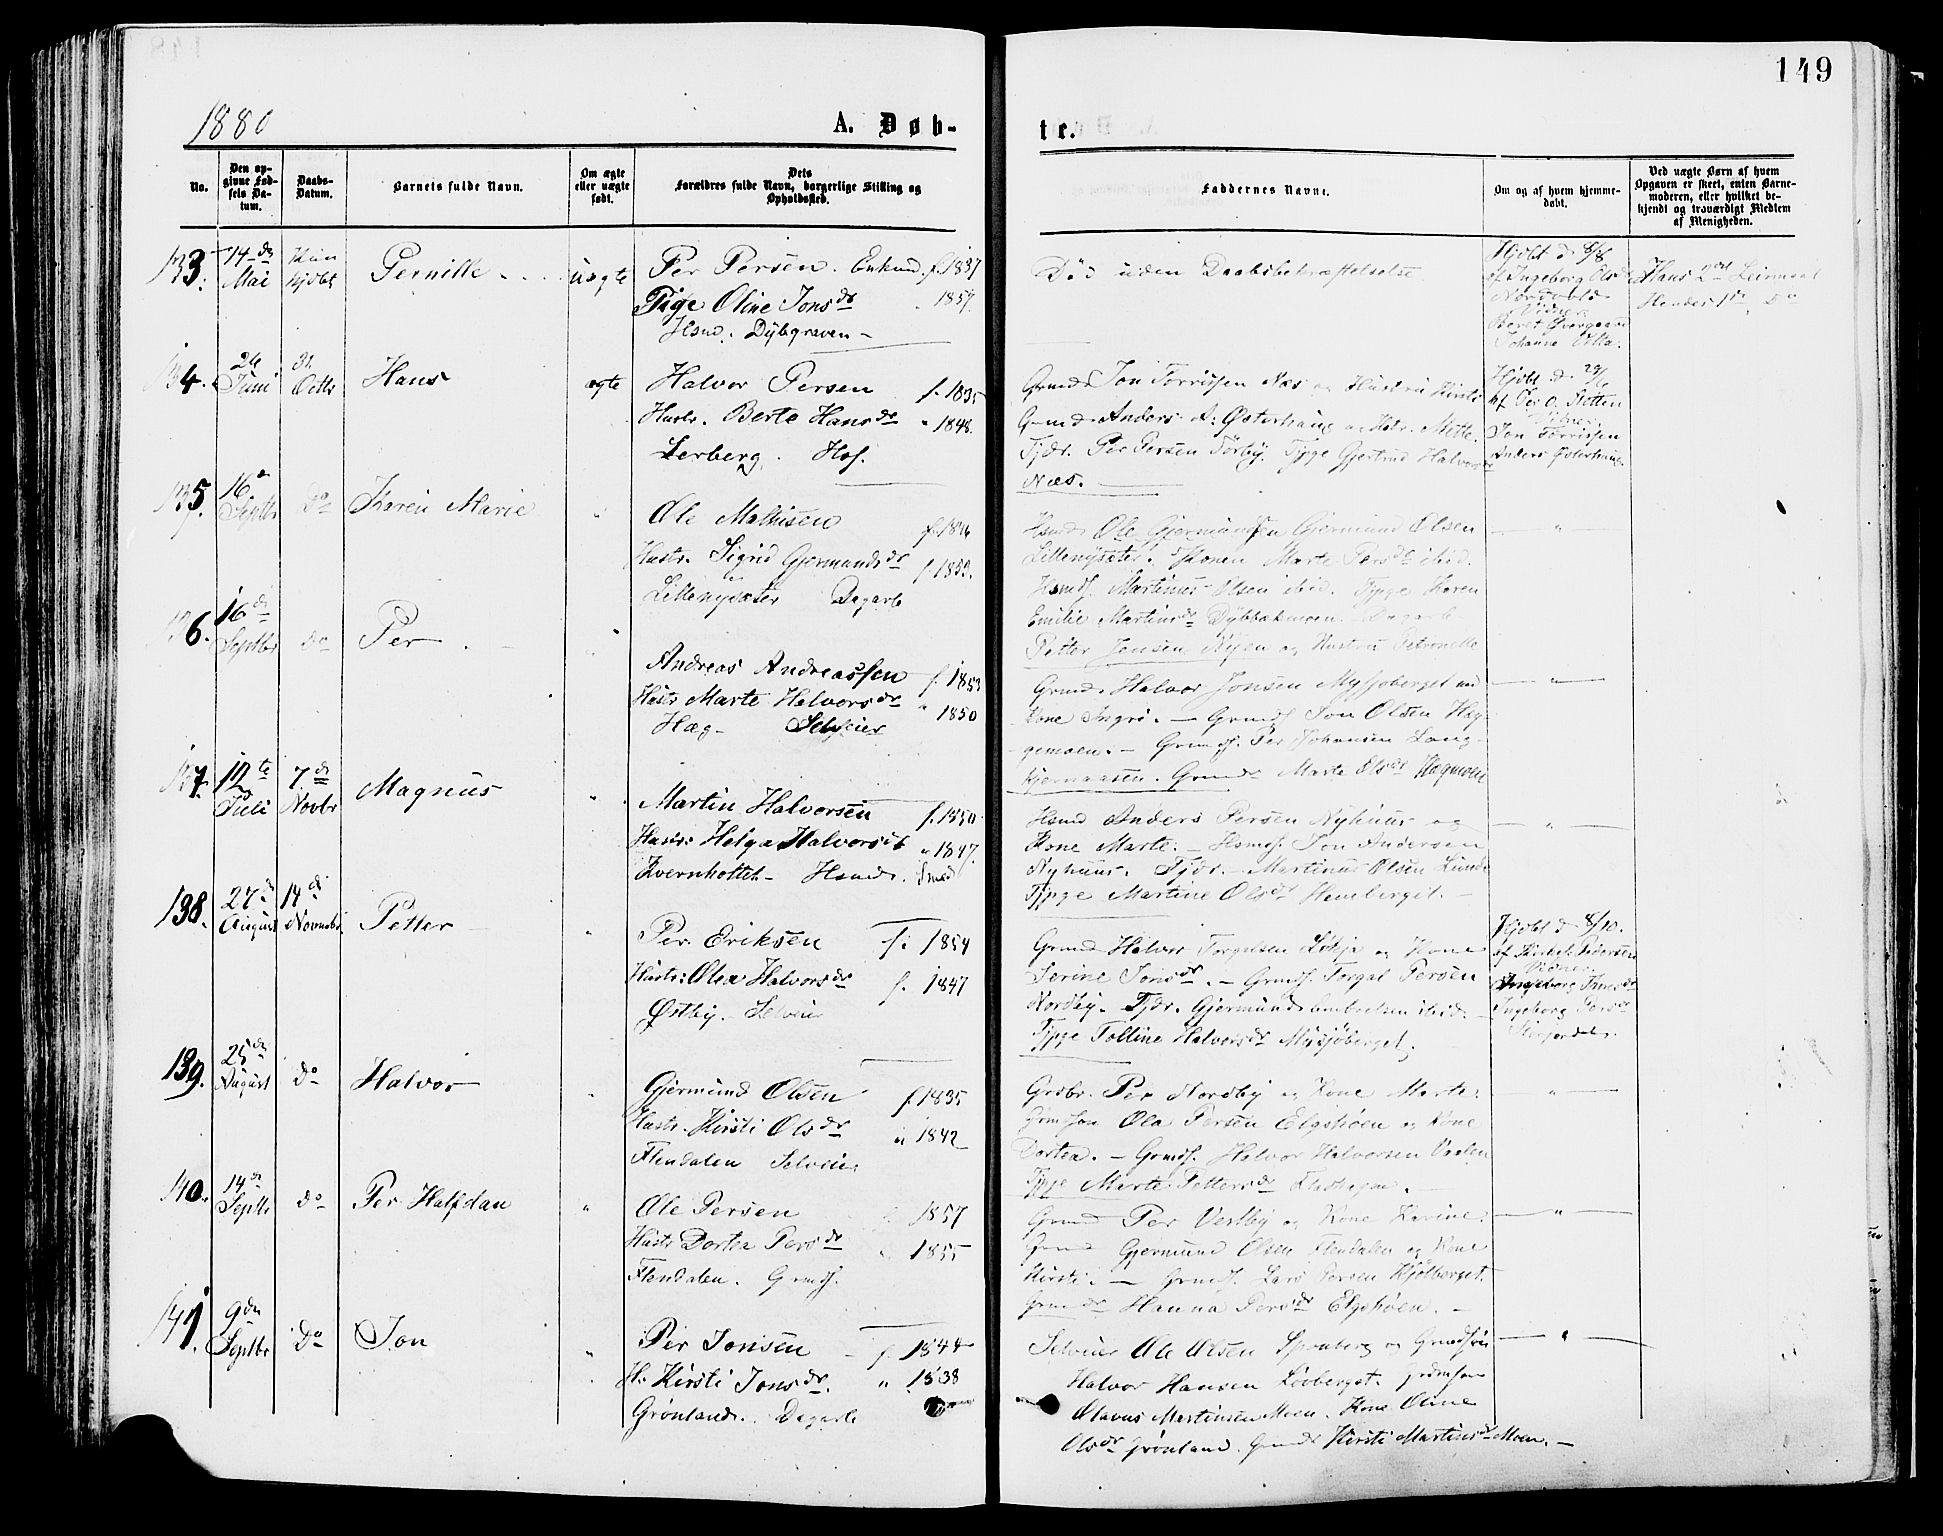 149
1880
A. Døb-
te.
No.
Den op-
givne Fød-
sels Da-
tum.
Daabs-
Datum.
Barnets fulde Navn.
Om ægte
eller uægte
født.
Dets
Forældres fulde Navn, borgerlige Stilling og
Opholdssted.
Faddernes Navne.
Om og af hvem hjemme-
døbt.
Ved uægte Børn af hvem
Opgaven er skeet, enten Barne-
moderen, eller hvilket be-
kjendt og troværdigt Medlem
af Menigheden.
133. 14de Mai Kun hjdbt Pernille uægte
Per Persen. Enkmd. f. 1837
Pige Oline Jonsdr " 1857.
Hsmd. Dybgraven
Død uden Daabsbekræftelse
Hjdbt d. 8/6
af Ingeborg Ols
Nordvold
Vidner
Johanne
Hans 2det Leiermaal
Hendes 1ste do
134. 24 Juni 31 Octbr Hans ægte
Halvor Persen f. 1835
Hustr. Berte Hansdr " 1848.
Lerberg. Hof.
Grmd. Jon Torrissen Næs og Hustru Kirsti
Grmd. Anders A. Østerhaug og Hstr. Mette.
Tjdr. Per Persen Tørby. Tjpge Gjertrud Halvorsdr
Næs.
Hjdbt d. 29/6
af Per O. Sletten
Vidner
Jon Torrissen
Anders Østerhaug.
135. 16de Septbr do Karen Marie "
Ole Mathisen f. 1846
Hustr. Sigrid Gjermundsdr f. 1853.
Lillenysæter Dagarb
Hsmd. Ole Gjermundsen Gjermund Olsen
Lillenysæter. Konen Marte Persdr ibid.
Hsmds. Martinus Olsen ibid. Tjpge Karen
Emilie Martinsdr Dybbakmoen. Dagarb
Petter Jensen Nyen og Hustru Petronelle
"
136. 16de Septbr do Per "
Andreas Andreassen f. 1853
Hustr Marte Halvorsdr " 1850
Hæg Selveier
Grmd. Halvor Jonsen Mysjøberget
Kone Ingrø. Grmds. Jon Olsen Hæg-
gemoen. Grmds. Per Johansen Lang-
kjernaasen. Grmdr Marte Olsdr Hægmoen
"
137. 12te Juli 7de Novbr Magnus "
Martin Halvorsen f. 1850
Hustr. Helga Halvorsdr " 1847.
Kvernhottet Hsmd. Smed
Hsmd Anders Persen Nyhuus og
Kone Marte. Hsmds. Jon Andersen
Nyhuus. Tjdr. Martinus Olsen Lunde
Tjpge Martine Olsdr Hemberget.
"
138. 27de August 14de Novembr Petter "
Per Eriksen f. 1854
Hustr: Olea Halvorsdr f. 1847
Østby. Selveier
Grmd Halvor Torgalsen Løkje og Kone
Serine Jonsdr. Grmds. Torgal Persen
Nordby. Tjdr. Gjermund Embretsen ibid.
Tjpge Tolline Halvorsdr Mysjøberget.
Hjdbt d. 8/10.
Vidner.
Ingeborg
Ingeborg Persdr
139. 25de August do Halvor "
Gjermund Olsen f. 1835
Hustr. Kirsti Olsdr " 1842
Flendalen Selveier
Grdbr. Per Nordby og Kone Marte.
Grmdson Ola Persen Elgshøen og Kone
Dortea. Grmds. Halvor Halvorsen Vaalen
Tjpge Marte Pettersdr
"
140. 14de Septbr do Per Halfdan "
Ole Persen f. 1857
Hustr Dortea Persdr " 1855
Flendalen. Grmds.
Grmd Per Vestby og Kone Karine.
Grmd Gjermund Olsen Flendalen og Kone
Kirsti. Grmds. Lars Persen Kjølberget.
Grmdr Hanna Persdr Elgshøen.
"
141. 9de Septbr do Jon "
Per Jonsen f. 1844
H. Kirsti Jonsdr. " 1838
Grønland. Dagarb
Selveier Ole Olsen Sponberg og Grmdson
Halvor Hansen Løvberget. Grdmson
Olavus Martinsen Moen. Kone Oline
Olsdr Grønland. Grmdr Kirsti Martinsdr Moen.
"